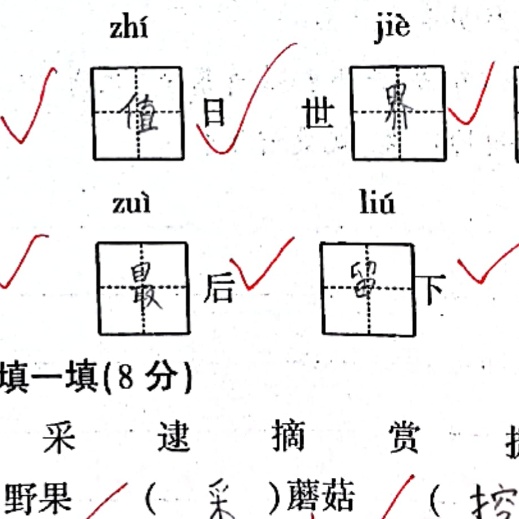 zhí jiè
值日 世界
zuì liú
最后 留下
填一填(8分)
采 逮 摘 赏
野果 (采)蘑菇 (挖